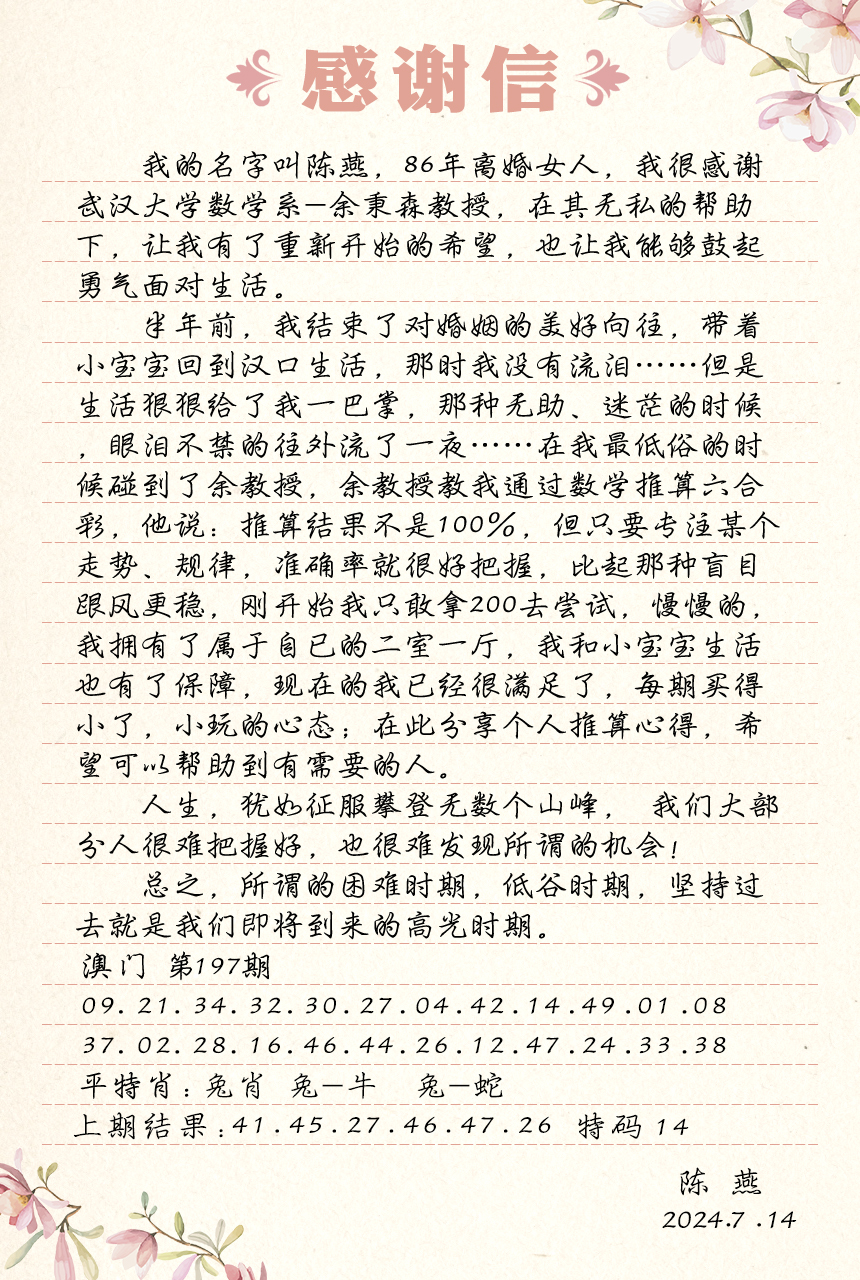 感谢信
我的名字叫陈燕，86年离婚女人，我很感谢
武汉大学数学系—余秉森教授，在其无私的帮助
下，让我有了重新开始的希望，也让我能够鼓起
勇气面对生活。
半年前，我结束了对婚姻的美好向往，带着
小宝宝回到汉口生活，那时我没有流泪……但是
生活狠狠给了我一巴掌，那种无助、迷茫的时候
，眼泪不禁的往外流了一夜……在我最低俗的时
候碰到了余教授，余教授教我通过数学推算六合
彩，他说：推算结果不是100%，但只要专注某个
走势、规律，准确率就很好把握，比起那种盲目
跟风更稳，刚开始我只敢拿200去尝试，慢慢的，
我拥有了属于自已的二室一厅，我和小宝宝生活
也有了保障，现在的我已经很满足了，每期买得
小了，小玩的心态；在此分享个人推算心得，希
望可以帮助到有需要的人。
人生，犹如征服攀登无数个山峰， 我们大部
分人很难把握好，也很难发现所谓的机会！
总之，所谓的困难时期，低谷时期，坚持过
去就是我们即将到来的高光时期。
澳门 第197期
09.21.34.32.30.27.04.42.14.49.01.08
37.02.28.16.46.44.26.12.47.24.33.38
平特肖：兔肖 兔—牛 兔—蛇
上期结果：41.45.27.46.47.26 特码 14
陈 燕
2024.7.14